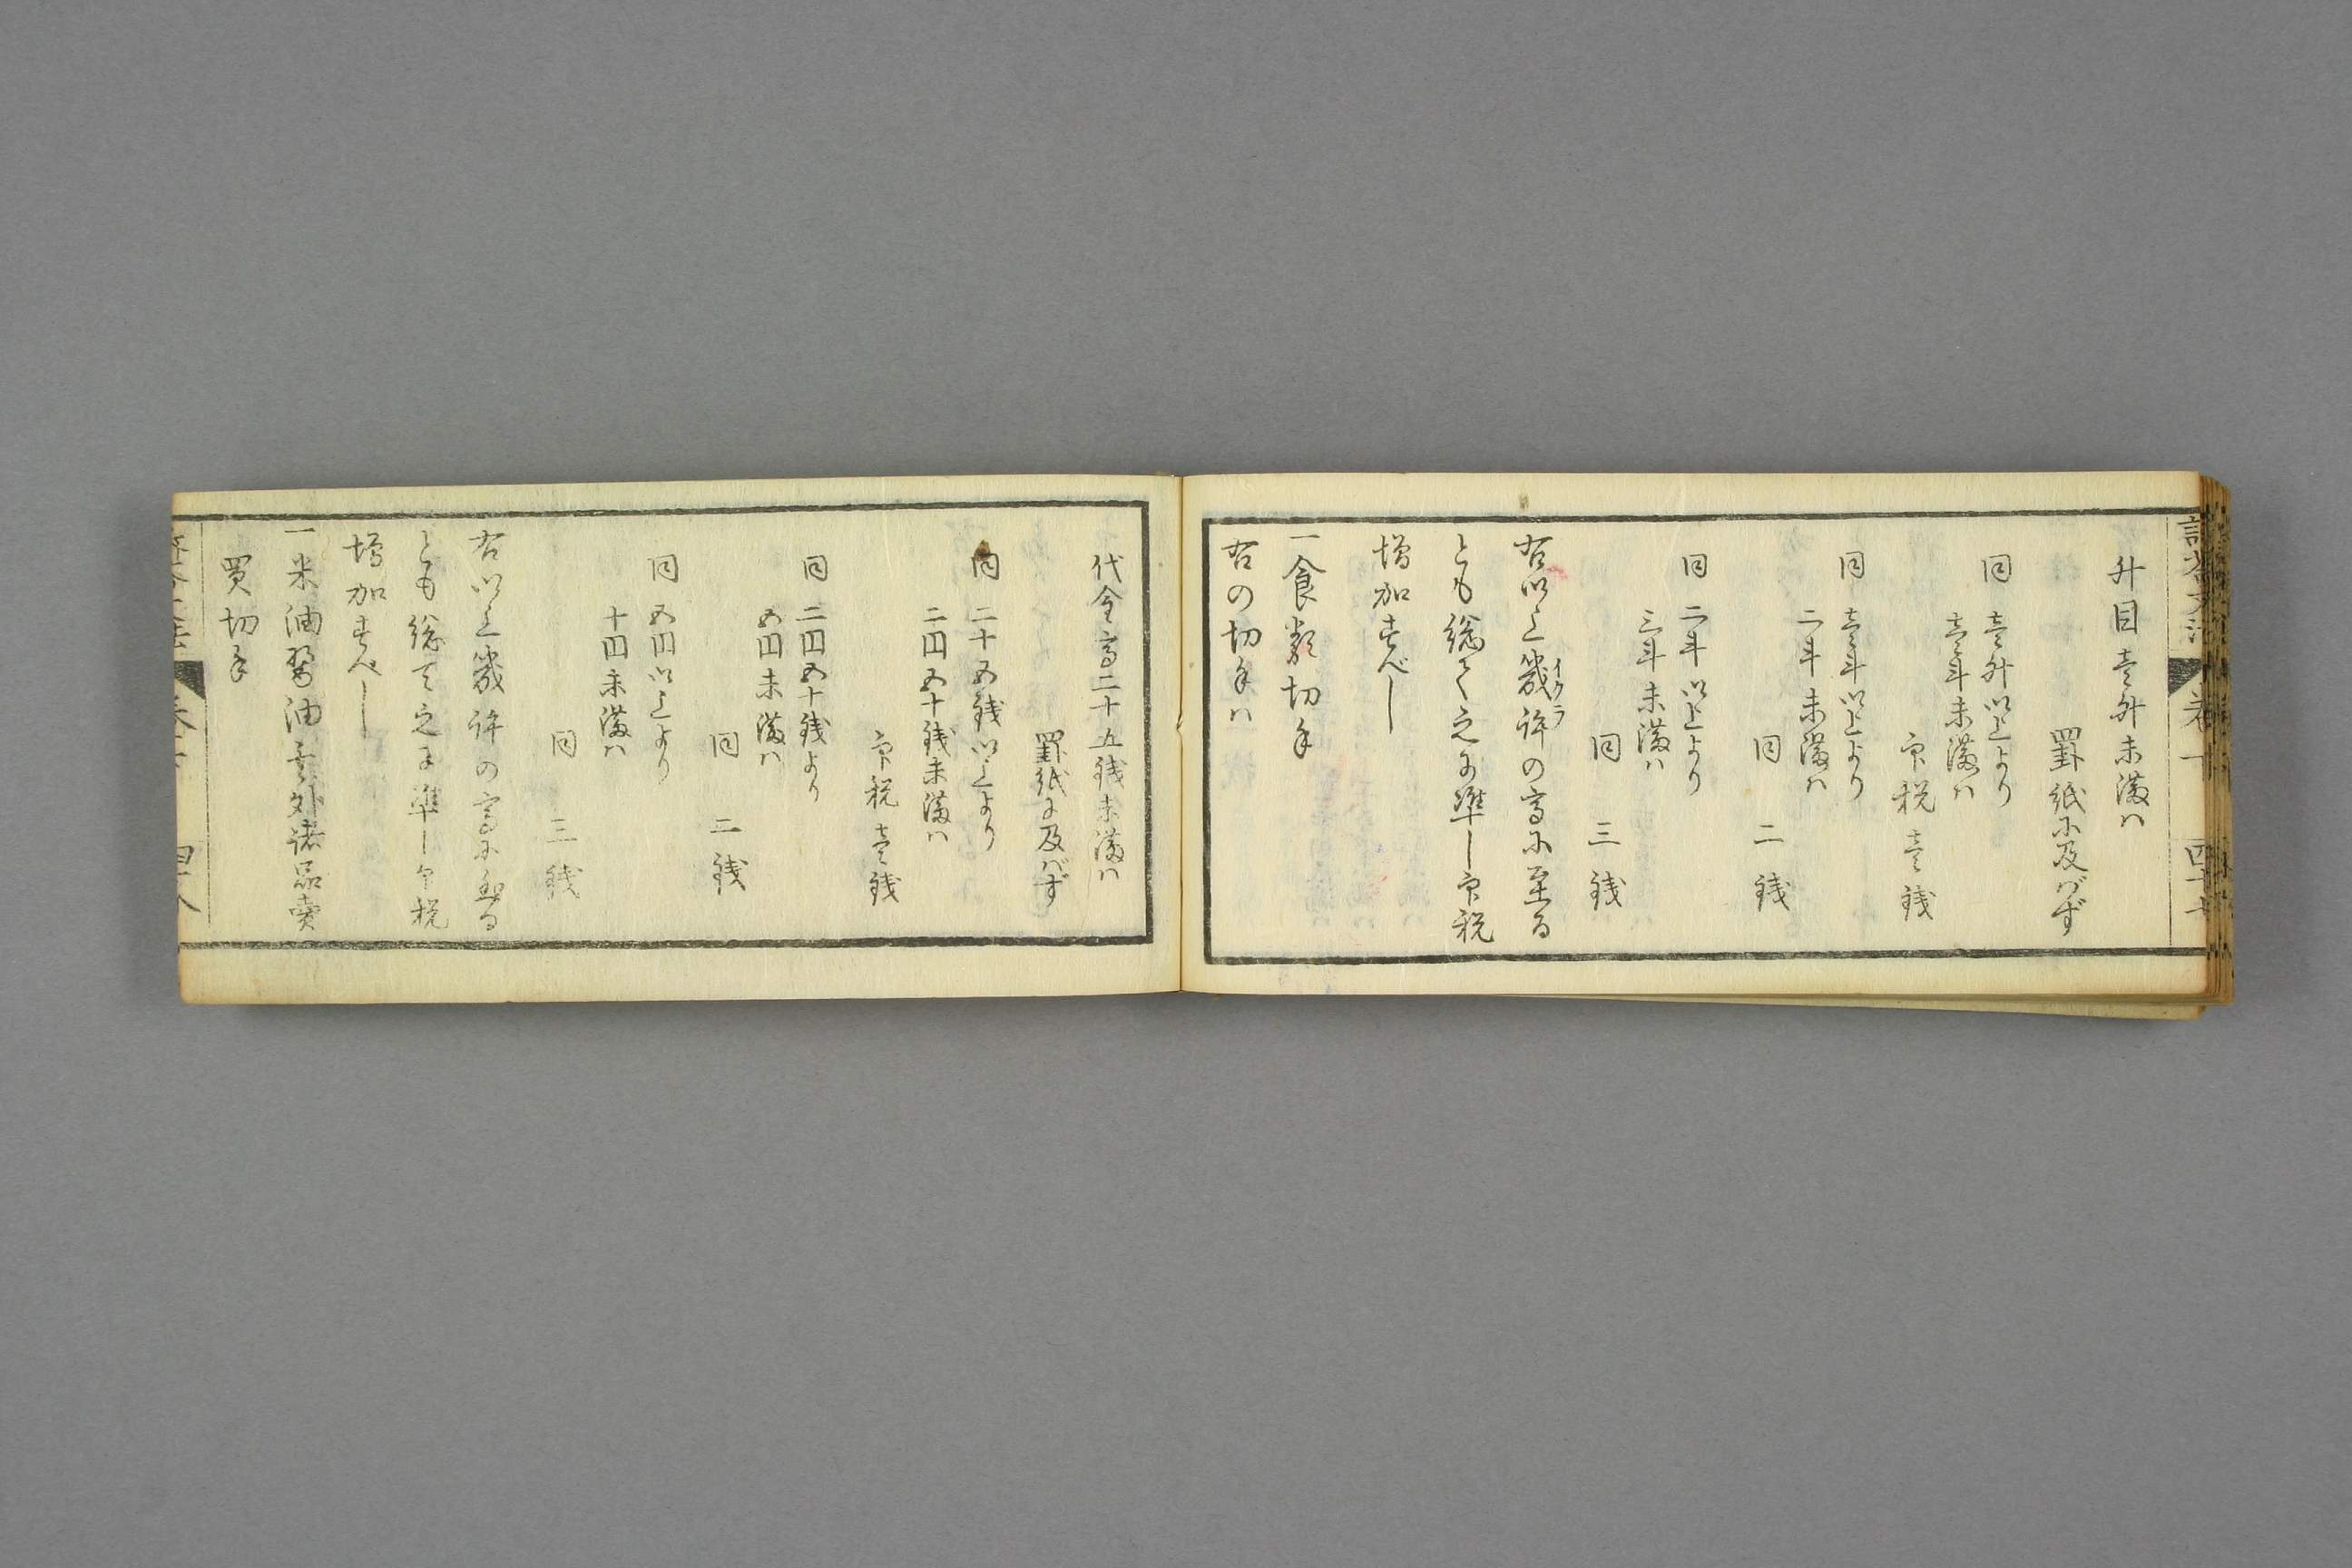 升目壱升未満ハ
罫紙に及バず
同 壱升以上より
壱斗未満ハ
印税壱銭
同 壱斗以上より
二斗未満ハ
同 二銭
同 二斗以上より
三斗未満ハ
同 三銭
右以上幾許の高に至る
イクラ
とも総て之に準し印税
増加すべし
一食類切手
右の切手ハ
代金高二十五銭未満ハ
罫紙に及バず
同 二十五銭以上より
二円五十銭未満ハ
印税壱銭
同 二円五十銭より
五円未満ハ
同 二銭
同 五円以上より
十円未満ハ
同 三銭
右以上幾許の高に至る
とも総て之に準し印税
増加すべし
一米油醤油其外諸品売
買切手